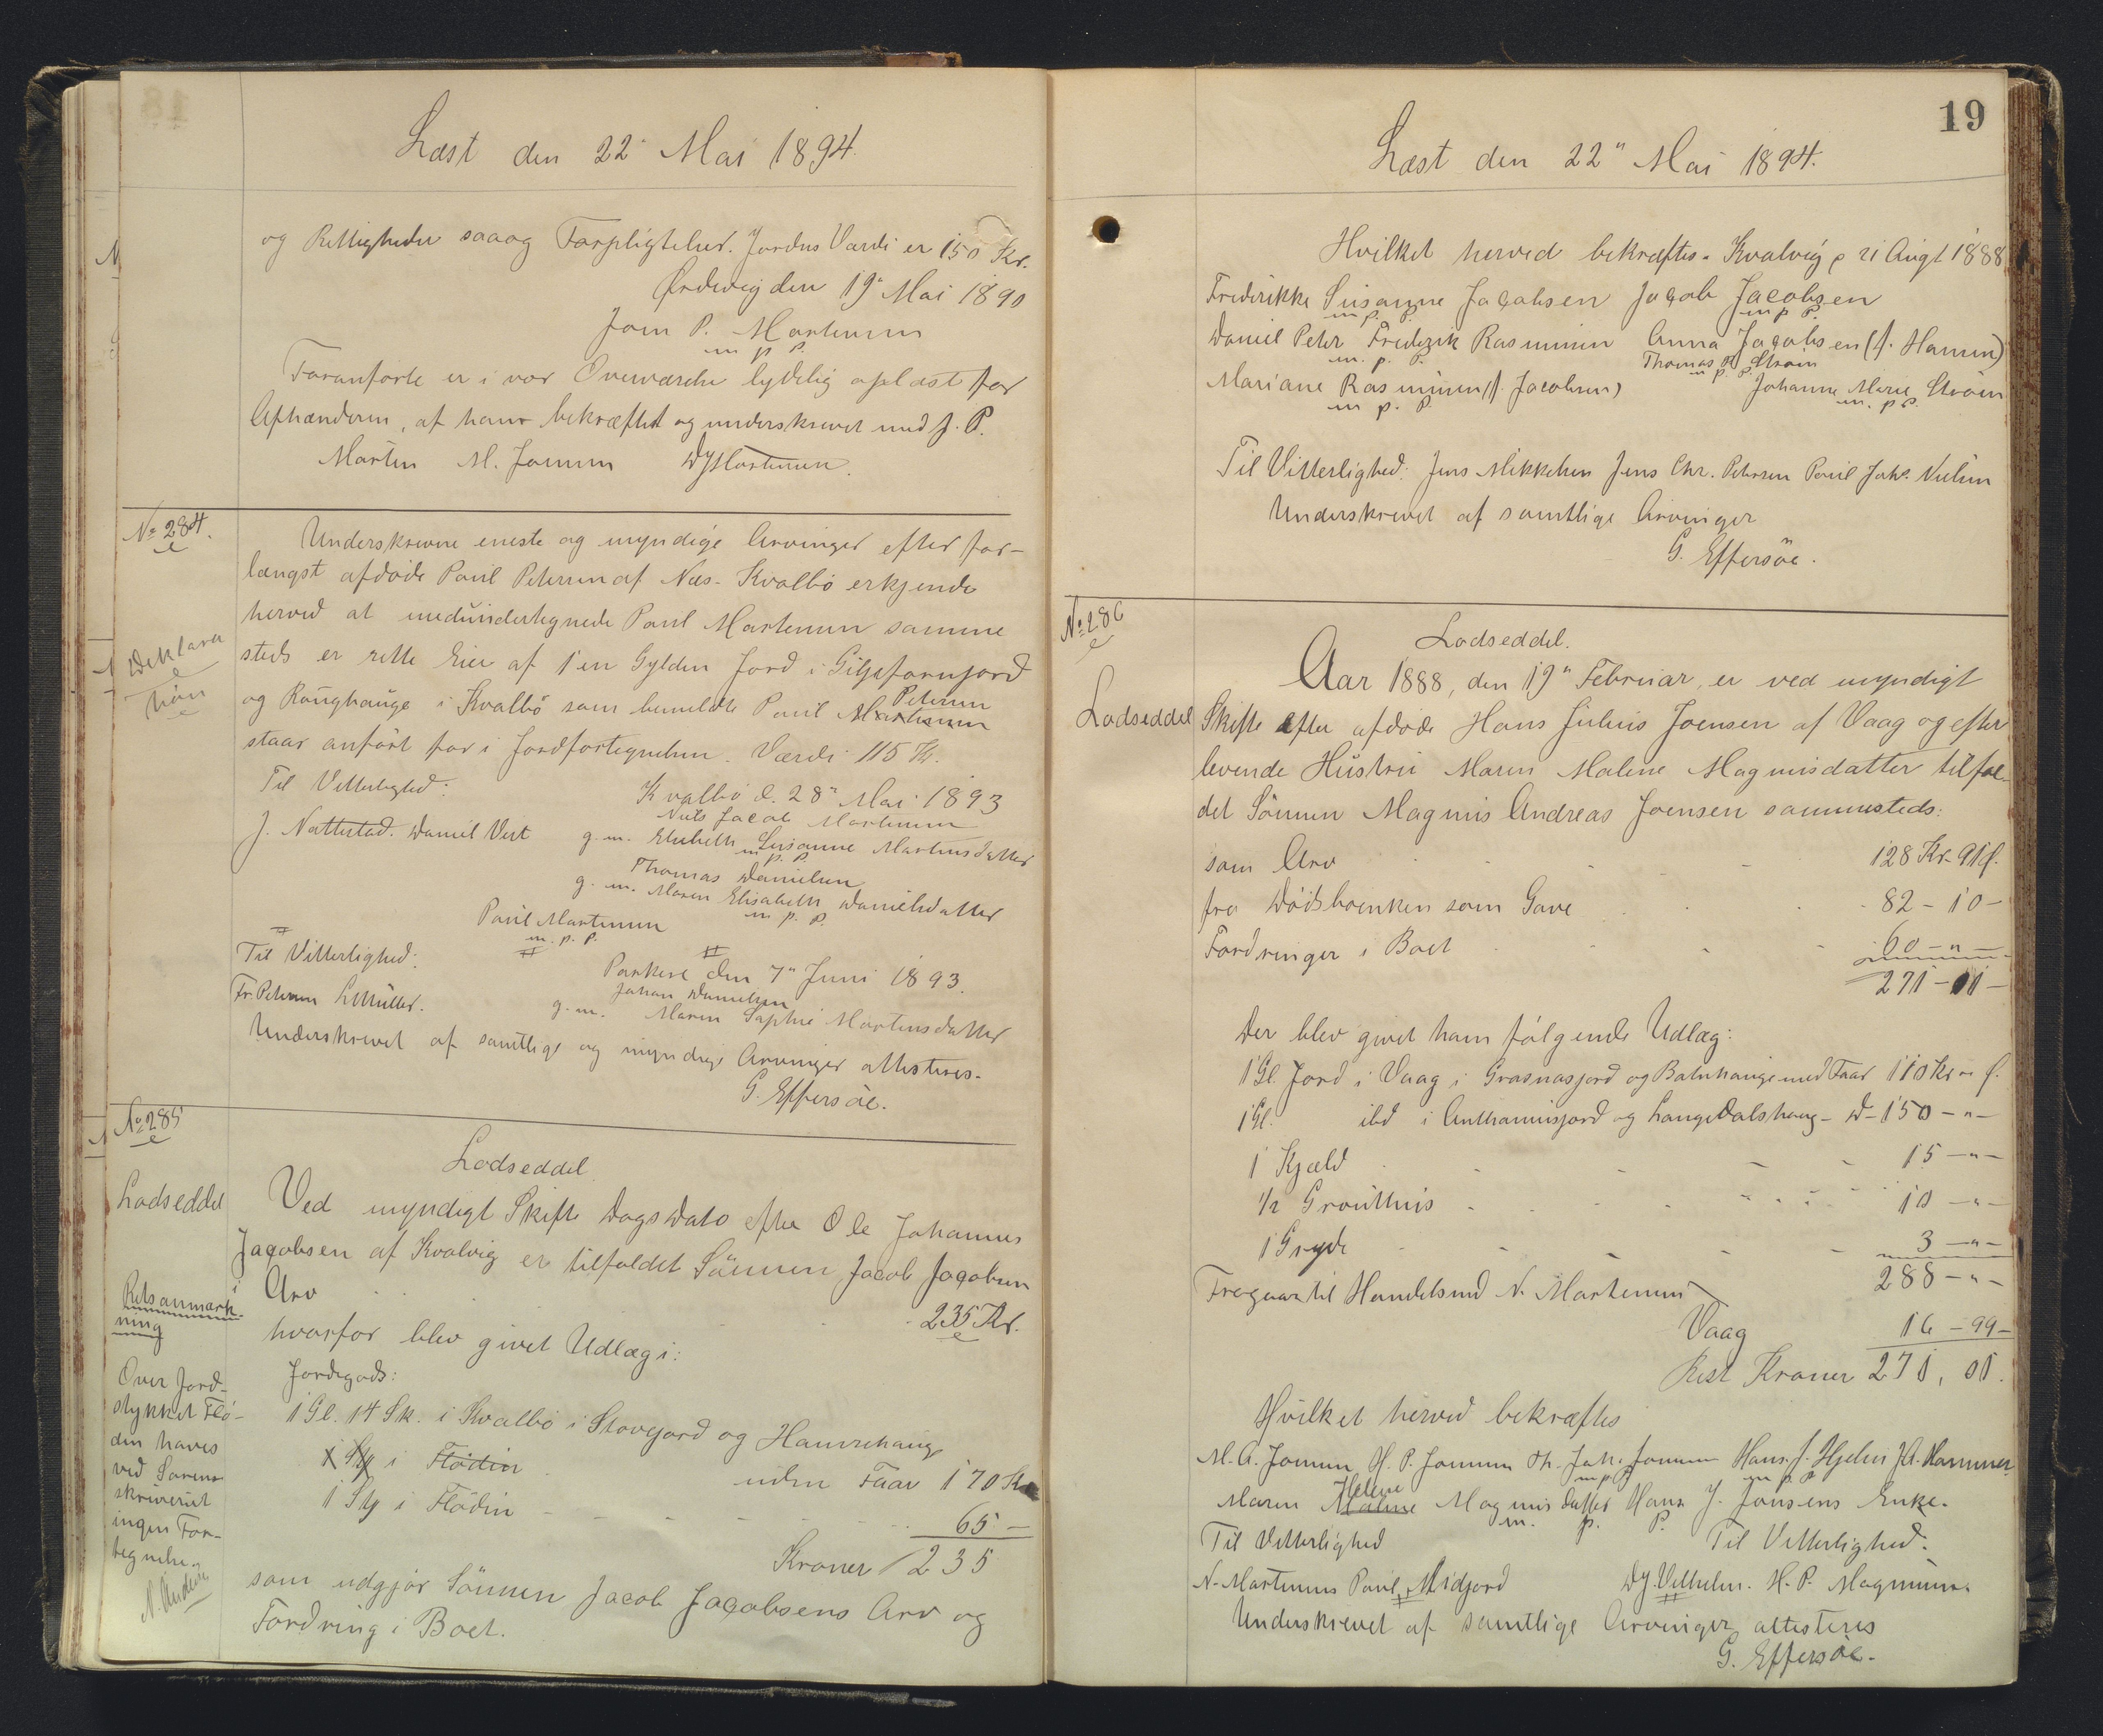 Læst den 22" Mai 1894.
og Rettigheder saaog Forpligtelser. Jordens Værdi er 150 Kr.
Ørdevig den 19" Mai 1890
Joen P. Mortensen
m. p. P.
Foranførte er i vor Overværelse lydelig oplæst for
Afhænderen, af ham bekræftet og underskrevet med J. P.
Morten M. Joensen DJMortensen.
No 284.
Deklara
tion
Underskrevne eneste og myndige Arvinger efter for-
længst afdøde Poul Petersen af Næs-Kvalbø erkjende
herved at medundertegnede Poul Mortensen samme
steds er rette Eier af 1 en Gylden Jord i
og i Kvalbö som bemeldte Poul Mortensen Petersen
staar anført for i Jordfortegnelsen. Værdi 115 Kr.
Til Vitterlighed:
Kvalbö d. 28" Mai 1893
Niels Jacob Mortensen
J. Nattestad. Daniel Vest
g. m. Elsebeth Susanne Mortensdatter
m. p. P.
Thomas Danielsen
g. m. Maren Elisabeth Danielsdatter
m. p. P.
Poul Mortensen
m. p. P.
Til Vitterlighed:
Porkere den 7" Juni 1893.
Johan Danielsen
Fr. Petersen L Müller.
g. m. Maren Sophie Mortensdatter
Underskrevet af samtlige og myndige Arvinger attesteres.
G. Effersøe.
No 285
Lodseddel
Lodseddel
Ved myndigt Skifte Dags Dato efter Ole Johannes
Jacobsen af Kvalvig er tilfaldet Sönnen Jacob Jacobsen
i Arv
235 Kr.
hvorfor blev givet Udlæg i:
Jordegods:
1 Gl. 14 Sk. i Kvalbö i Stovejord og Hamrehauge
uden Faar 170 Kr
1 Stk i Flödin
1 Stk i Flödin 65 -
Kroner 235
som udgjør Sönnen Jacob Jacobsens Arv og
Fordring i Boet.
Retsanmærk-
ning
Over Jord-
stykket Flö-
din haves
ved Soren-
skriveriet
ingen For-
tegnelse.
19
Læst den 22" Mai 1894.
Hvilket herved bekræftes. Kvalvig p 21 Augt 1888
Frederikke Susanne Jacobsen Jacob Jacobsen
m. p. P. m. p. P.
Daniel Peter Frederik Rasmussen Anna Jacobsen (f. Hansen)
m. p. P. Thomas Strøm m. p. P.
Mariane Rasmussen (f. Jacobsen) Johanne Marie Strøm
m. p. P. m. p. P.
Til Vitterlighed: Jens Mikkelsen Jens Chr. Petersen Poul Joh. Nielsen
Underskrevet af samtlige Arvinger
G. Effersöe.
No 286
Lodseddel
Lodseddel.
Aar 1888, den 19" Februar, er ved myndigt
Skifte efter afdøde Hans Julius Joensen af Vaag og efter
levende Hustru Maren Malene Magnusdatter tilfal-
det Sönnen Magnus Andreas Joensen sammesteds:
som Arv 128 Kr. 91 Ø.
fra Dödsboenken som Gave 82 - 10 -
Fordringer i Boet 60 - " -
271 - 01 -
Der blev givet ham fölgende Udlæg:
1 Gl. Jord i Vaag i Grasnasjord og med Faar 110 Kr " Ø.
1 Gl. ibd i og Langedalshaug - D - 150 - " -
1 Kjæld 15 - " -
1/2 Grouthus 10 - " -
1 Gryde 3 - " -
288 - " -
Fragaar til Handelsmd N. Mortensen
Vaag 16 - 99 -
Rest Kroner 271, 01.
Hvilket herved bekræftes
M. A. Joensen H. P. Joensen Th. Joh. Joensen Hans J. Hjelm J A. Hammer.
m. p. P. m. p. P.
Maren Malene Helene Magnusdatter Hans J. Joensens Enke.
m. p. P.
Til Vitterlighed Til Vitterlighed:
N. Mortensens Poul Midjord DJ. Vilhelm. H. P. Magnussen.
Underskrevet af samtlige Arvinger attesteres
G. Effersöe.